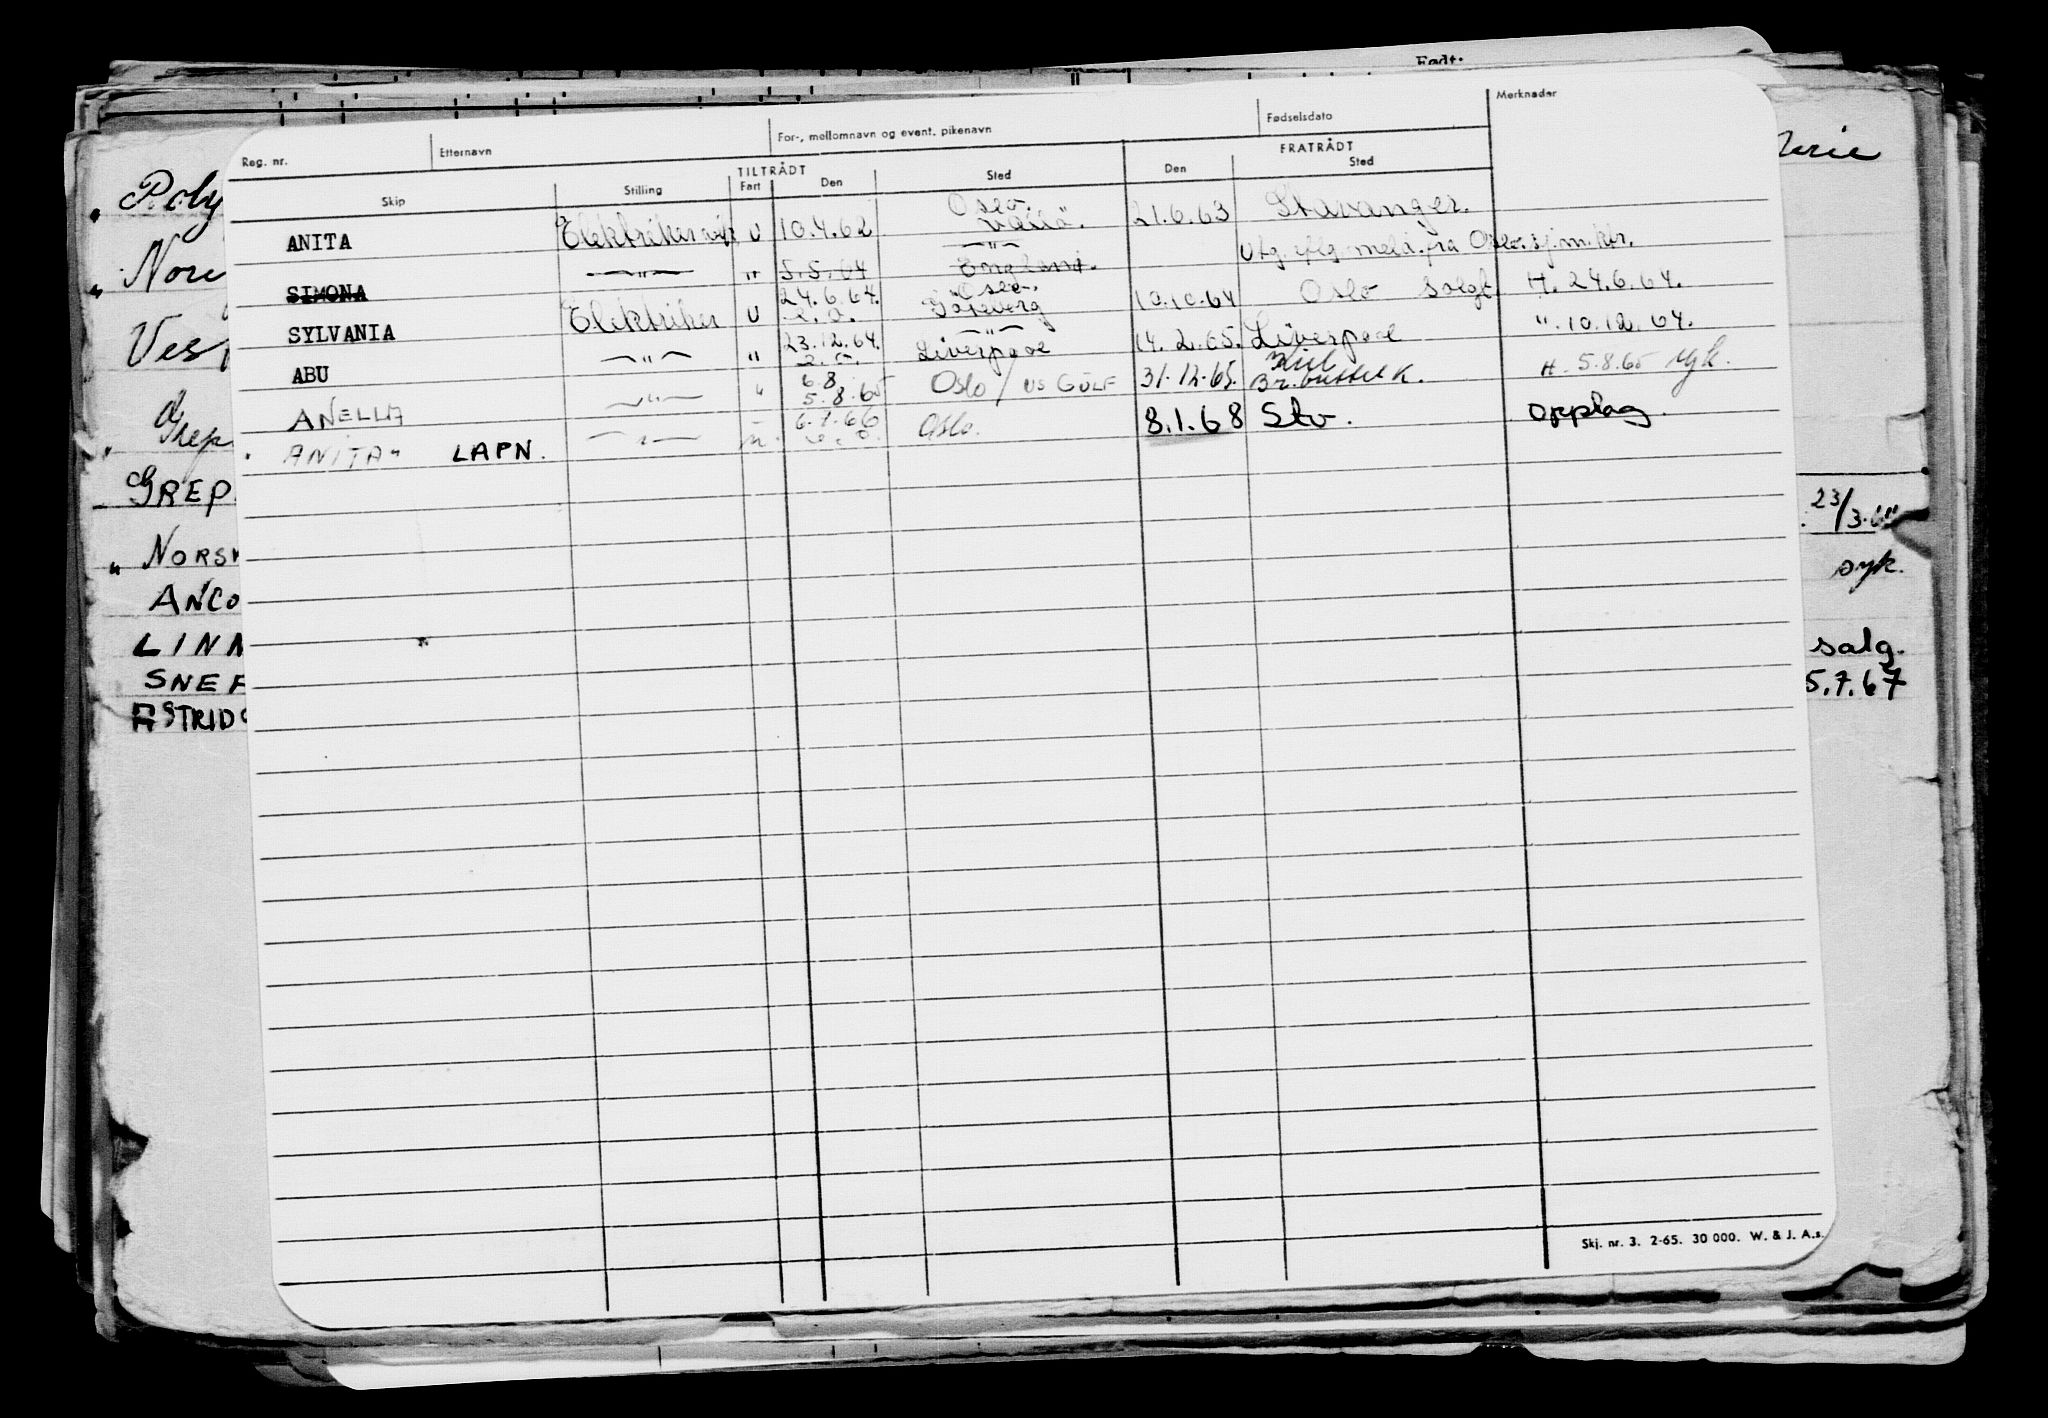 Født:
Reg. nr. Etternavn For-, mellomnavn og event. pikenavn Fødselsdato Merknader
TILTRÅDT FRATRÅDT
Skip Stilling Fart Den Sted Den Sted
ANITA Elektriker U 10.4.62 Oslo. 21.6.63 Stavanger.
SIMONA —"— " 5.5.64 England. Utg. iflg. meld. fra Oslo sj.m.ktr.
SYLVANIA Elektriker U 24.6.64. Oslo. Göteborg 10.10.64 Oslo Solgt. H. 24.6.64.
ABU —"— " 23.12.64. —"— Liverpool 14.2.65. Liverpool ". 10.12.64.
ANELLA —"— " 6.8 5.8.65 Oslo / US GULF 31.12.65. Kiel H. 5.8.65 syk.
" ANITA" LAPN. —"— 6.7.66 Oslo. 8.1.68 Stv. opplag.
" Poly
" Nore
Ves
" Grep
" GREP
" NORS
ANCO
LINN
SNEF
ASTRID
23/3.
syk.
salg.
5.7.67
Skj. nr. 3. 2-65. 30 000. W. & J. A.s.